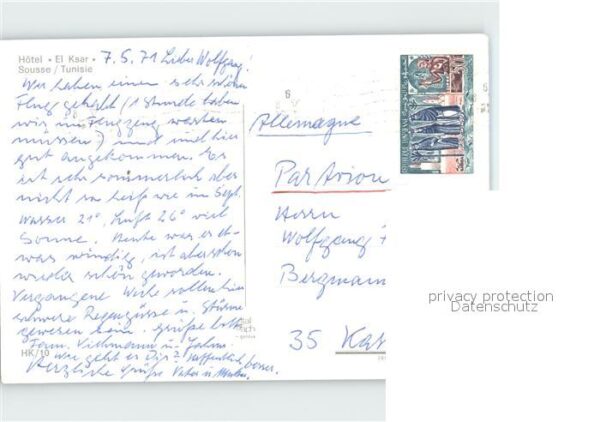 Hôtel • El Ksar •
Sousse / Tunisie
7.5.71 Lieber Wolfgang!
Wir haben einen sehr schönen
Flug gehabt (1 Stunde haben
wir im Flugzeug warten
müssen) und sind hier
gut angekommen. Es
ist sehr sommerlich aber
nicht so heiß wie im Sept.
Wasser 21°, Luft 26° viel
Sonne. Heute war es et-
was windig, ist aber schon
wieder schön geworden.
Vergangene Woche sollen hier
schwere Regengüsse u. Stürme
gewesen sein. Grüße bitte
Fam. Viehmann u.
Wie geht es Dir? Hoffentlich besser.
Herzliche Grüße Vater u.
HK/10
Allemagne
Par Avion
Herrn
Wolfgang
Bergmann
35 Kas
privacy protection
Datenschutz